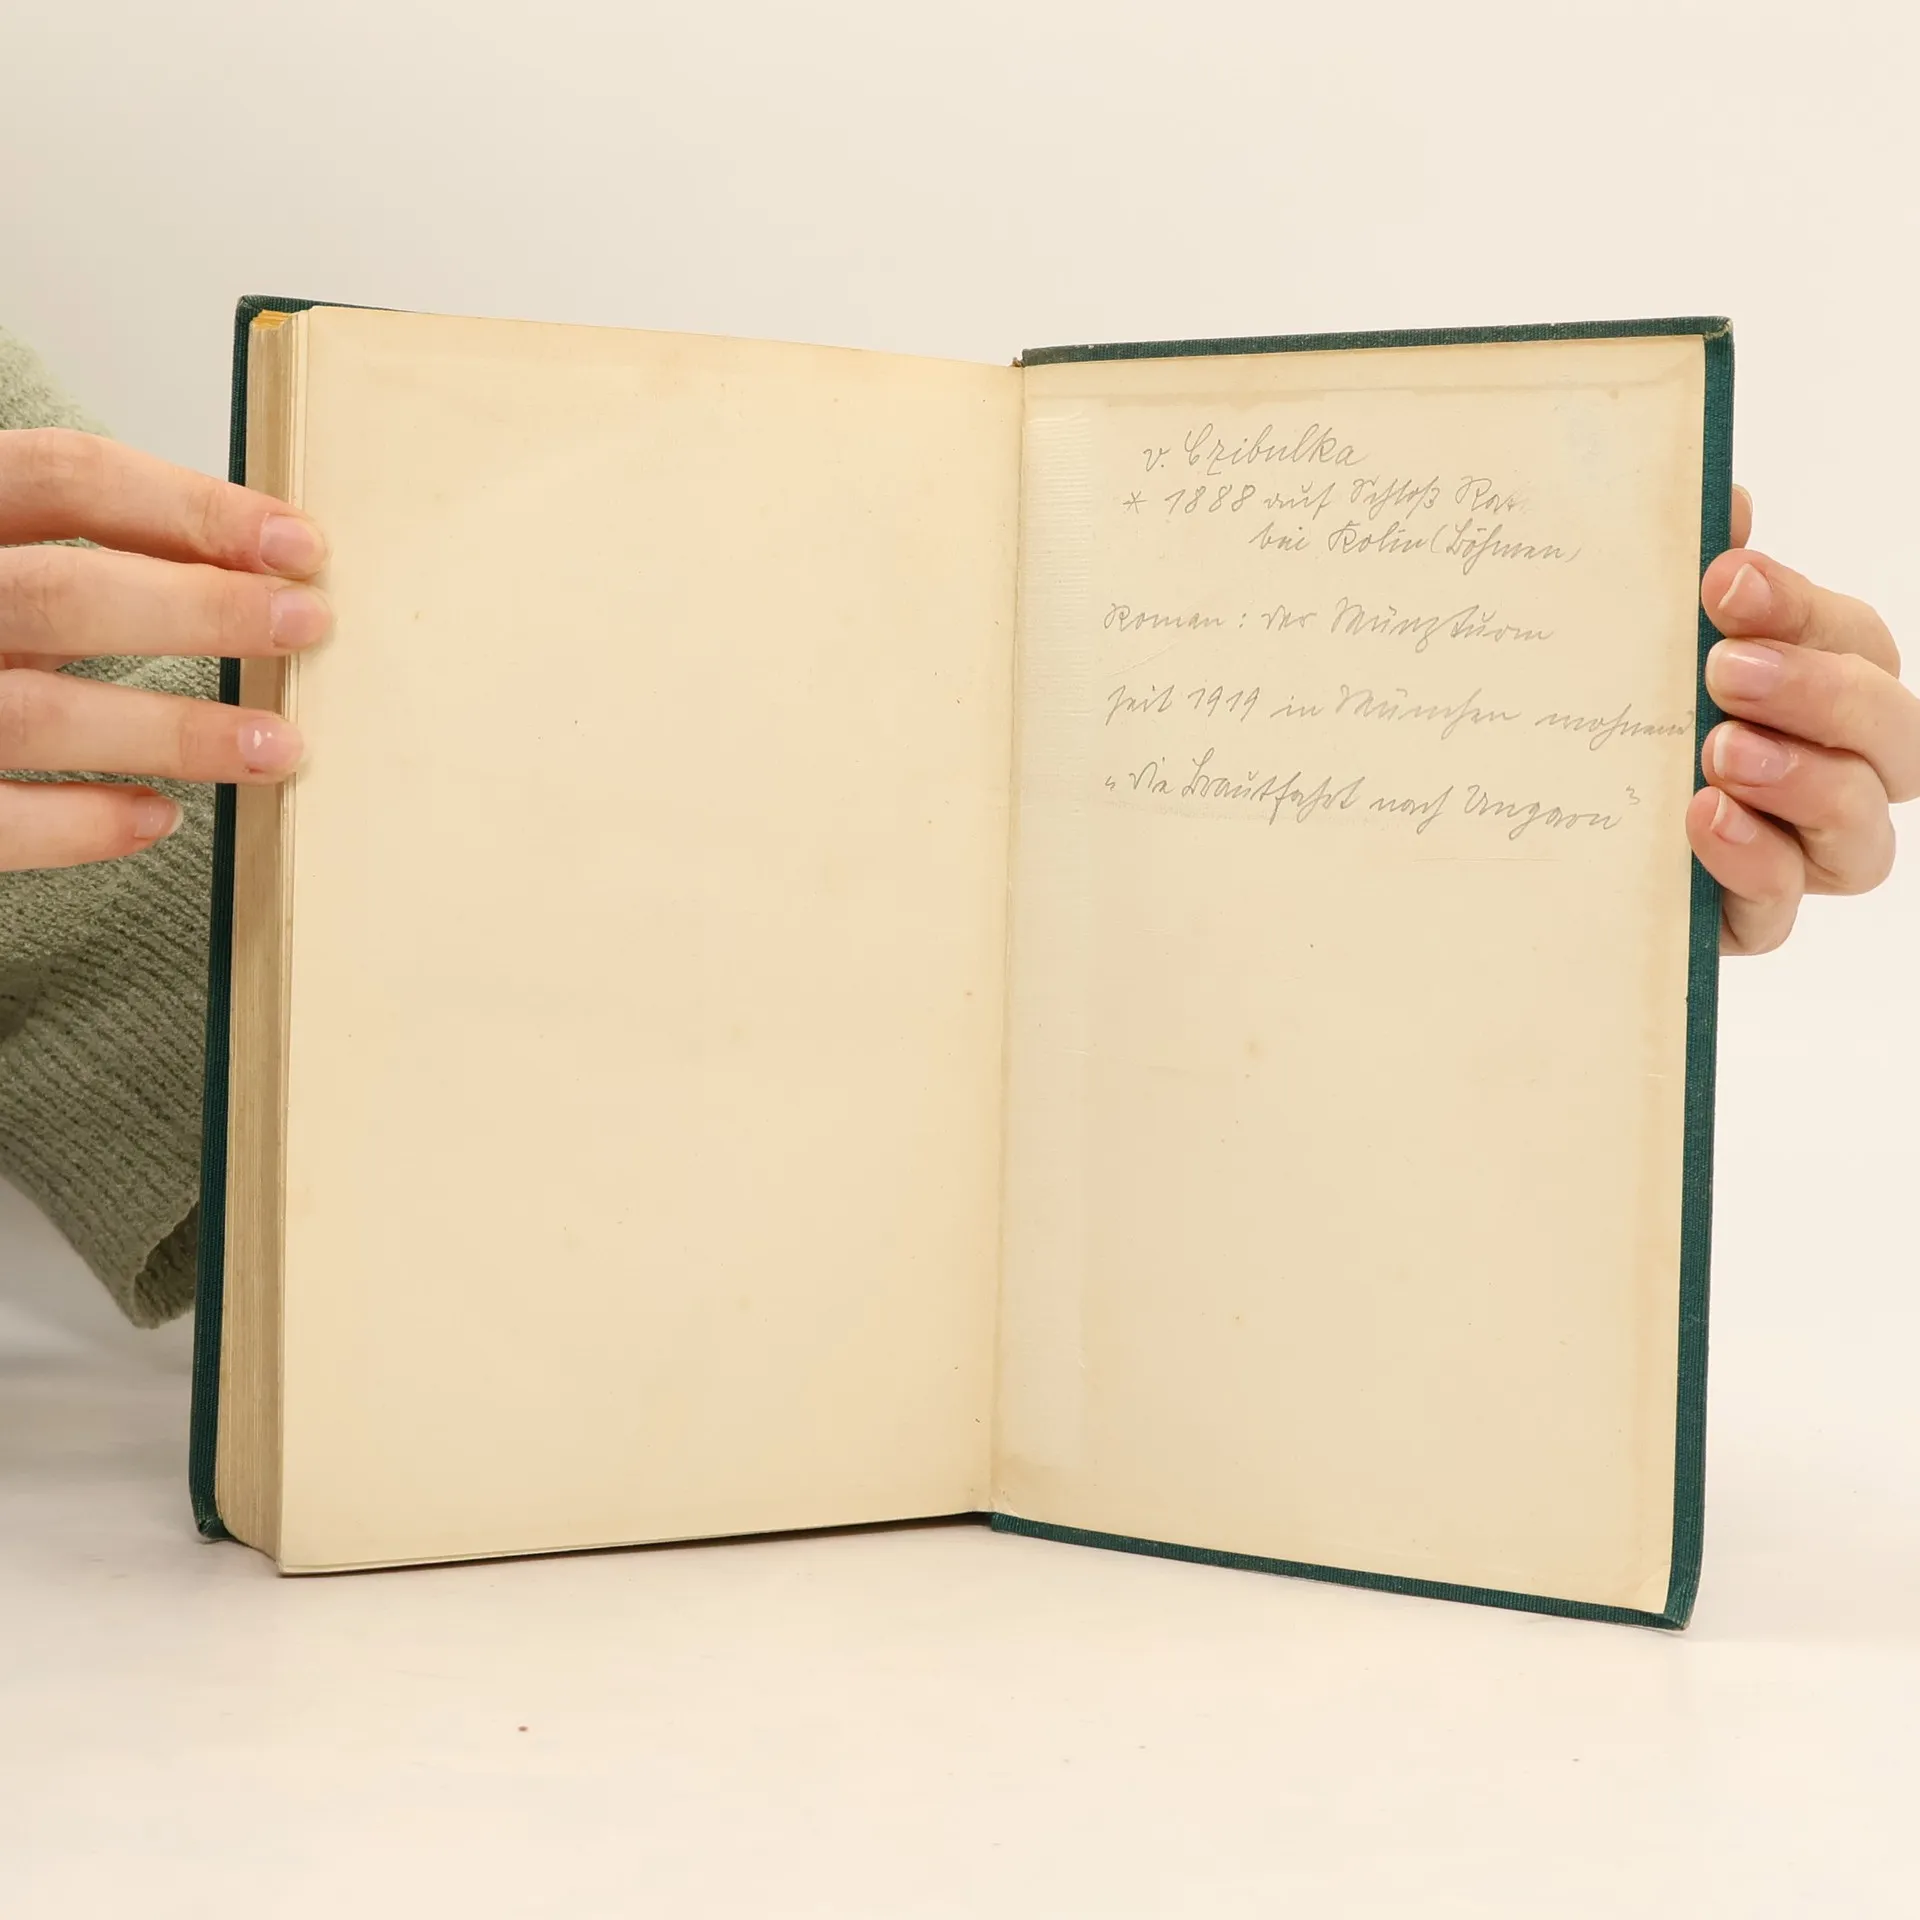 v. Czibulka
* 1888 auf Schloß
bei Kolin (Böhmen)
Roman: Der Münzturm
seit 1919 in München wohnend
„Die Brautfahrt nach Ungarn"